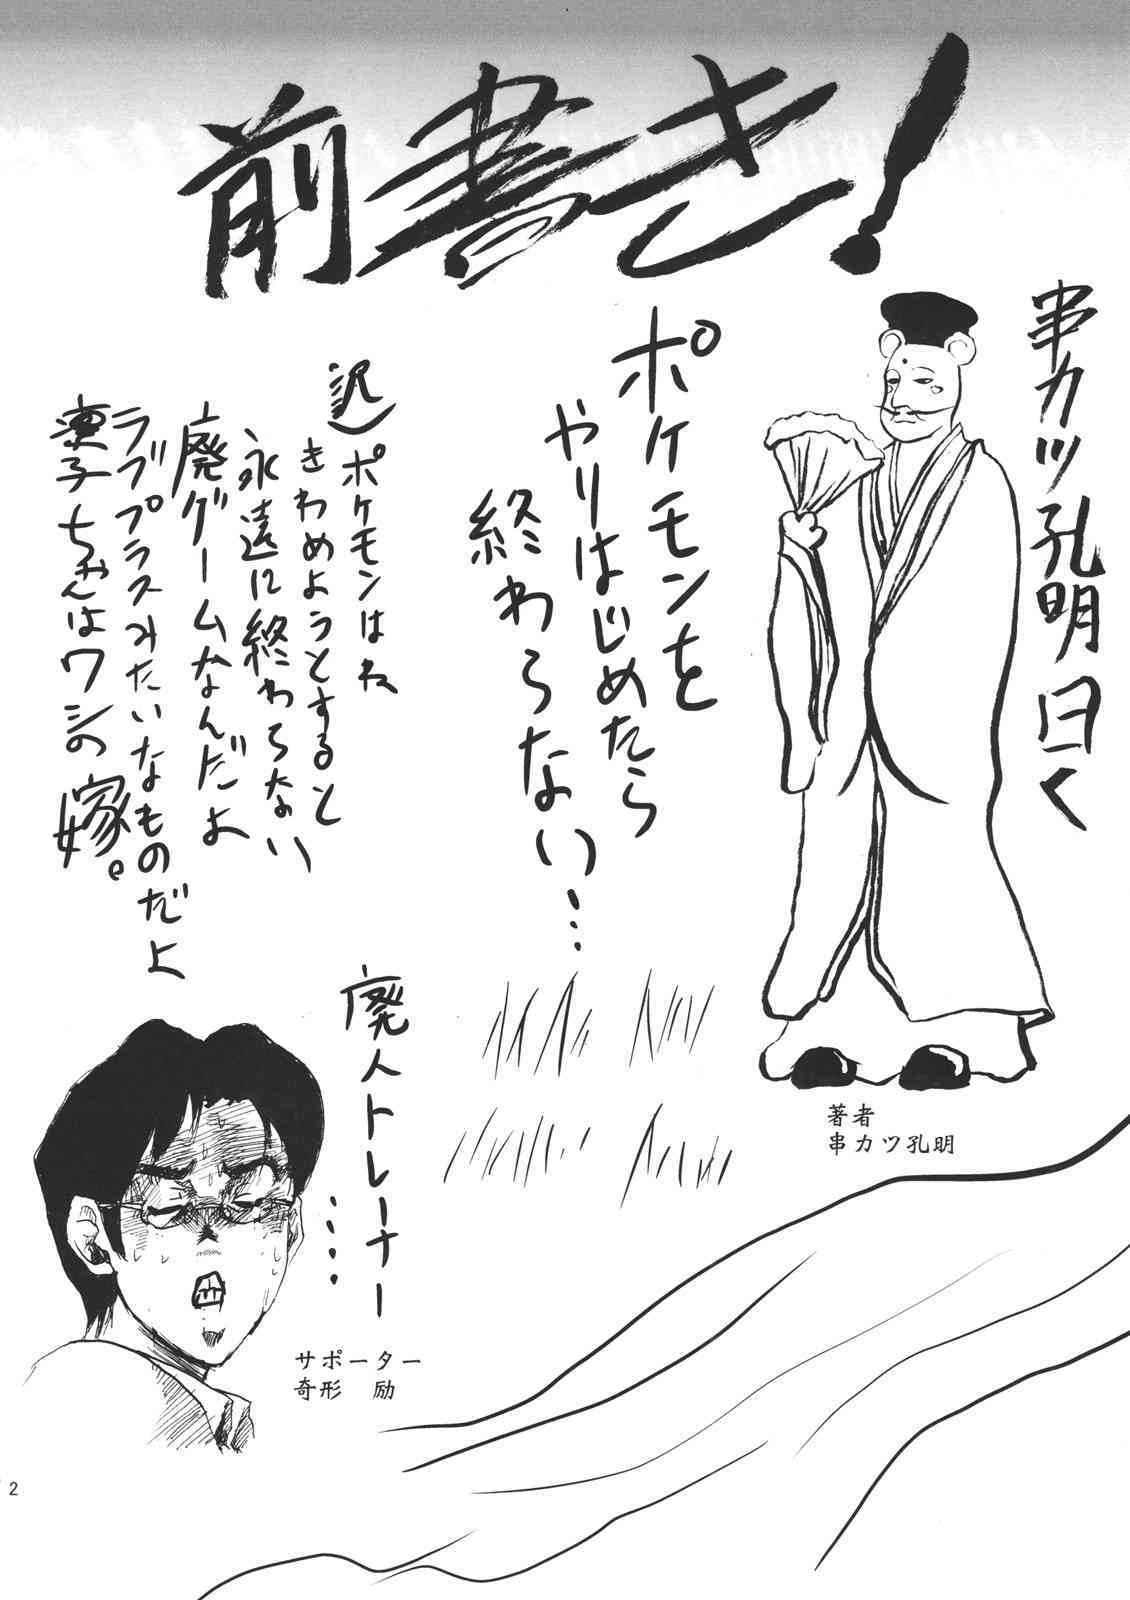 前書き!
串カツ孔明曰く
ポケモンを
やりはじめたら
終わらない…
訳)ポケモンはね
きわめようとすると
永遠に終わらない
廃ゲームなんだよ
ラブプラスみたいなものだよ
凛子ちゃんはワシの嫁。
著者
串カツ孔明
廃人トレーナー……
サポーター
奇形 励
2